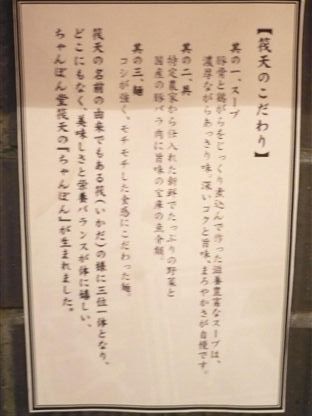 【筏天のこだわり】
其の一、スープ
豚骨と鶏がらをじっくり煮込んで作った滋養豊富なスープは、
濃厚ながらあっさり味。深いコクと旨味、まろやかさが自慢です。
其の二、具
特定農家から仕入れた新鮮でたっぷりの野菜と
国産の豚バラ肉に旨味の宝庫の魚介類。
其の三、麺
コシが強く、モチモチした食感にこだわった麺。
筏天の名前の由来でもある筏(いかだ)の様に三位一体となり、
どこにもなく、美味しさと栄養バランスが体に嬉しい、
ちゃんぽん堂筏天の『ちゃんぽん』が生まれました。